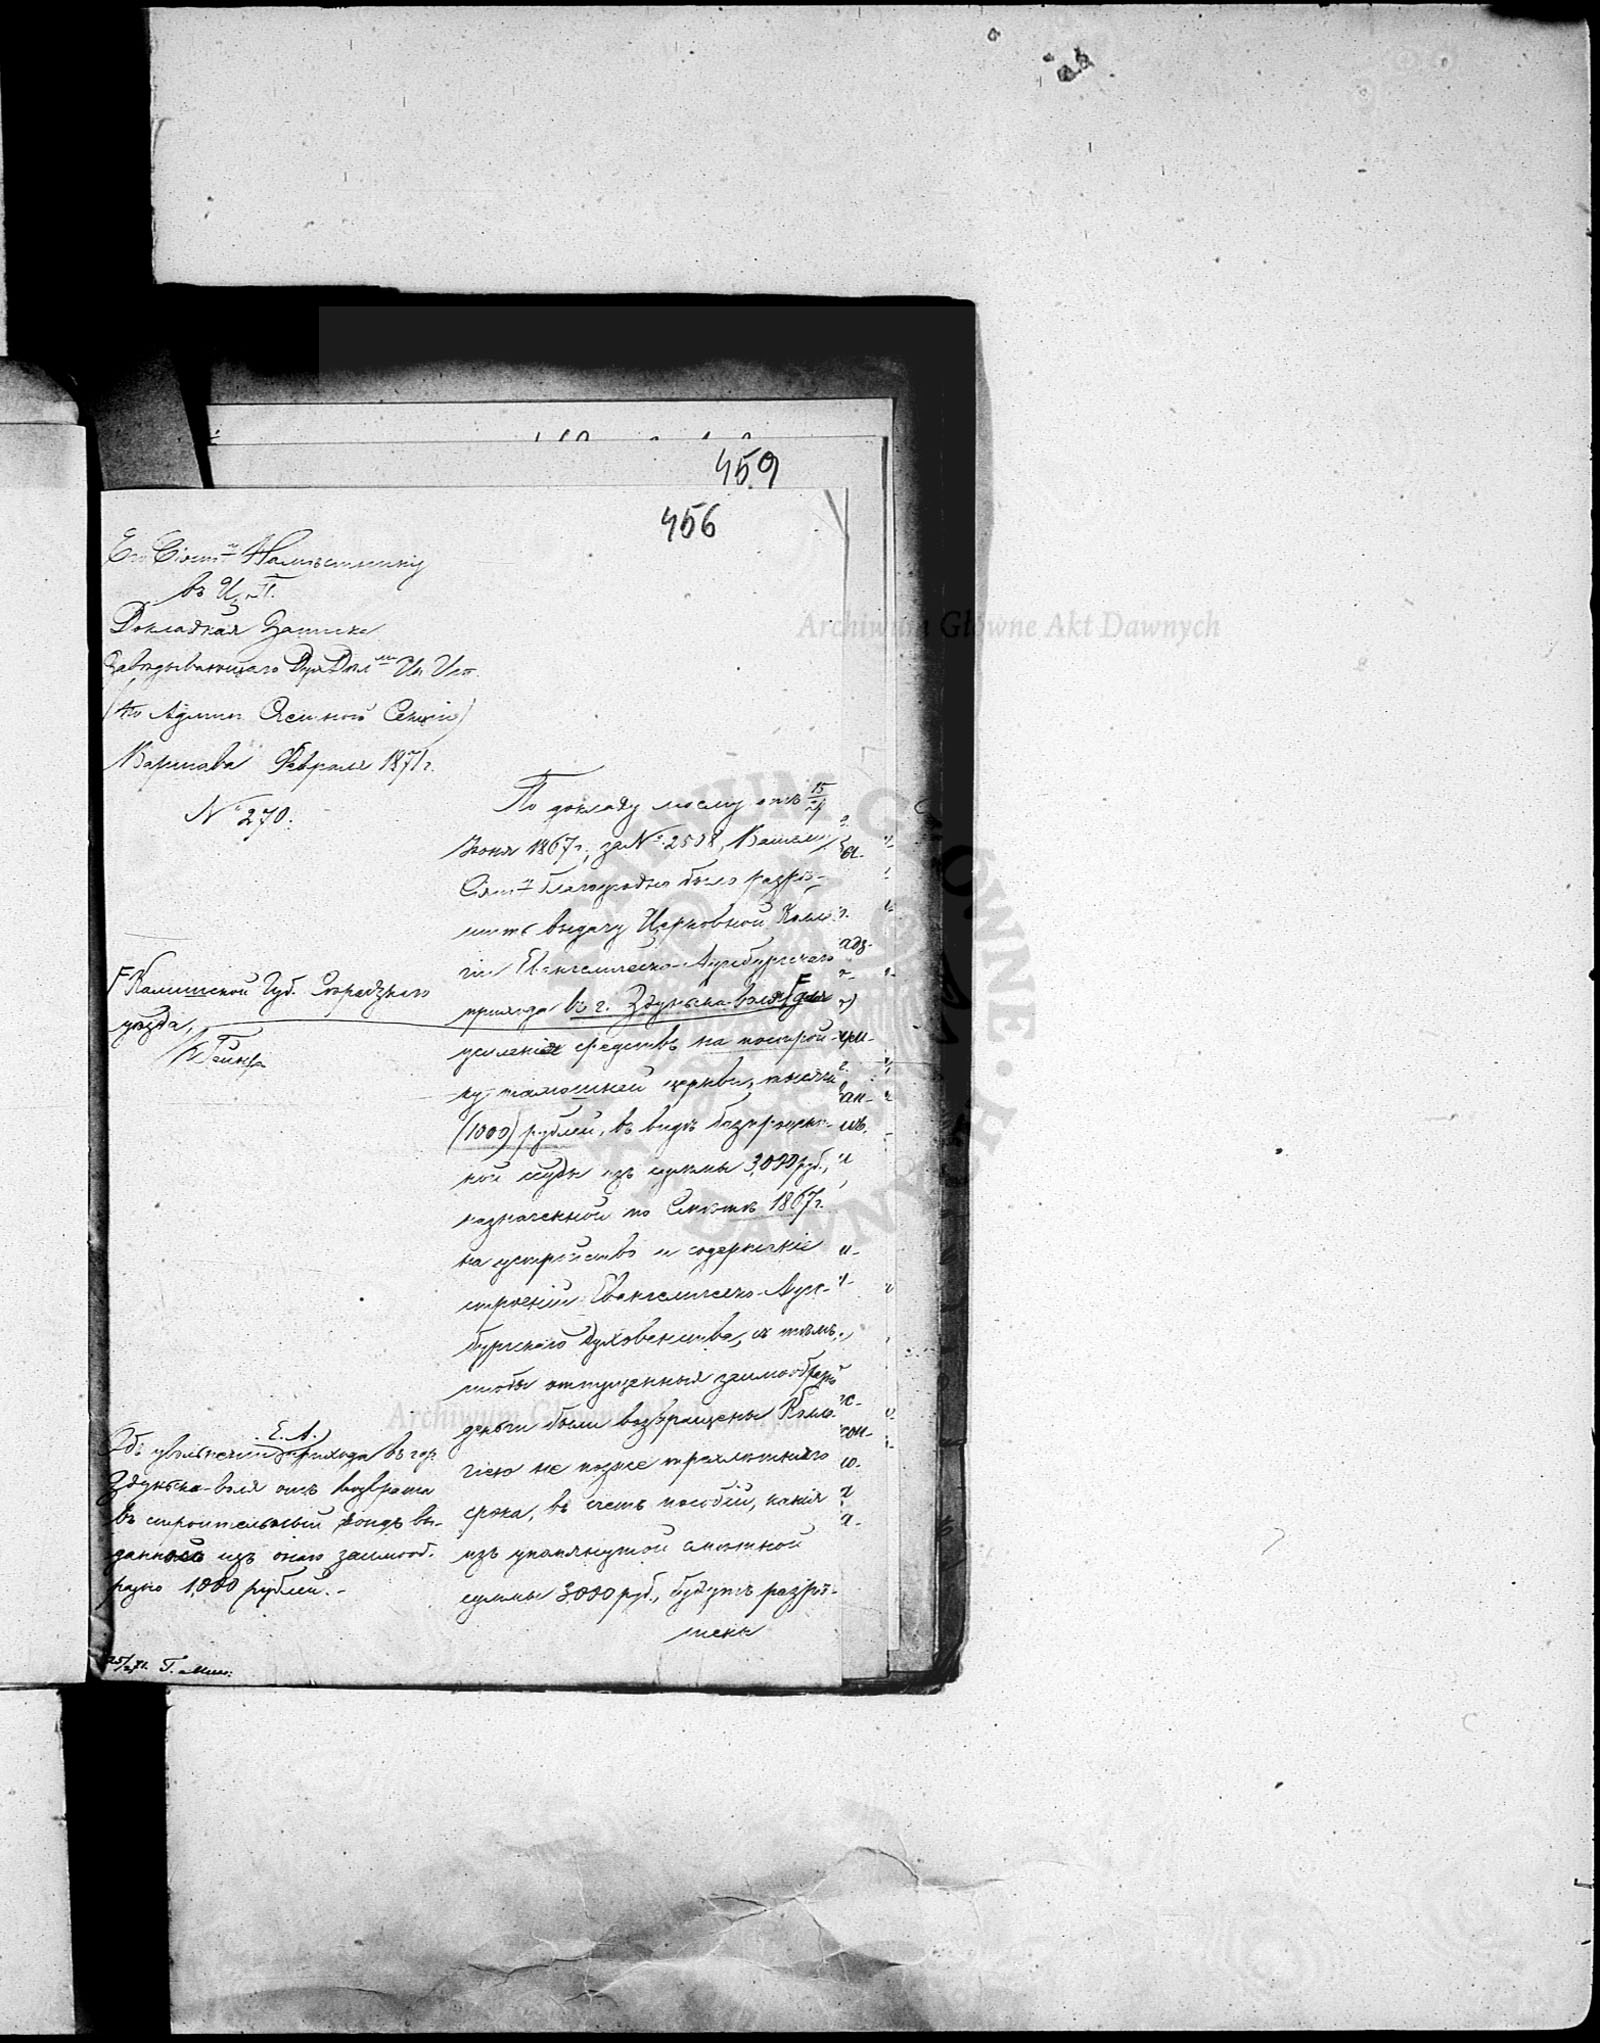 459
456
Его Сіят. Намѣстнику
въ Ц. П.
Докладная Записка
Завѣдывающаго Дух. Дѣл. Ин. Исп.
Варшава Февраля 1871 г.
№ 270.
По докладу моему отъ 15/27
Іюня 1867 г., за № 2508, Вашему
Сіят. благоугодно было разрѣ-
шить выдачу Церковной Колле-
гіи Евангелическо-Аугсбургскаго
прихода въ г. Здуньска-воля F для
усиленія средствъ на построй-
ку тамошней церкви, тысячи
(1000) рублей, въ видѣ безпроцент-
ной ссуды изъ суммы 3,000 руб.,
назначенной по Смѣтѣ 1867 г.
на устройство и содержаніе
строеній Евангелическо-Аугс-
бургскаго Духовенства, съ тѣмъ,
чтобы отпущенныя заимообразно
деньги были возвращены Колле-
гіею не позже трехлѣтняго
срока, въ счетъ пособій, какія
изъ упомянутой смѣтной
суммы 3000 руб., будутъ разрѣ-
шены
F Калишской Губ. Сѣрадзкаго
уѣзда,
Е. А.
Объ увольненіи прихода въ гор.
Здуньска-воля отъ возврата
въ строительный фондъ вы-
данныхъ изъ онаго заимооб-
разно 1,000 рублей.-
Archiwum Główne Akt Dawnych
Archiwum Główne Akt Dawnych